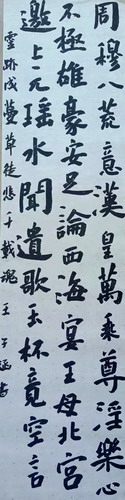 周穆八荒意漢皇萬乘尊淫樂心
不極雄豪安足論西海宴王母北宮
邀上元瑤水聞遺歌玉杯竟空言
靈跡成蔓草徒悲千載魂 王子涵書